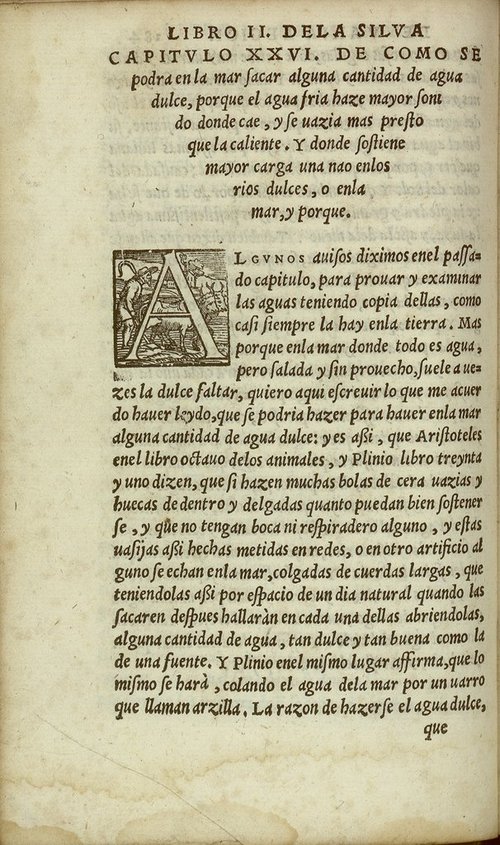 LIBRO II. DELA SILVA
CAPITVLO XXVI. DE COMO SE
podra en la mar sacar alguna cantidad de agua
dulce, porque el agua fria haze mayor soni
do donde cae, y se uazia mas presto
que la caliente. Y donde sostiene
mayor carga una nao enlos
rios dulces, o enla
mar, y porque.
ALGVNOS auisos diximos enel passa-
do capitulo, para prouar y examinar
las aguas teniendo copia dellas, como
casi siempre la hay enla tierra. Mas
porque enla mar donde todo es agua,
pero salada y sin prouecho, suele a ue-
zes la dulce faltar, quiero aqui escreuir lo que me acuer
do hauer leydo, que se podria hazer para hauer enla mar
alguna cantidad de agua dulce: y es assi, que Aristoteles
enel libro octauo delos animales, y Plinio libro treynta
y uno dizen, que si hazen muchas bolas de cera uazias y
huecas de dentro y delgadas quanto puedan bien sostener
se, y que no tengan boca ni respiradero alguno, y estas
uasijas assi hechas metidas en redes, o en otro artificio al
guno se echan enla mar, colgadas de cuerdas largas, que
teniendolas assi por espacio de un dia natural quando las
sacaren despues hallaràn en cada una dellas abriendolas,
alguna cantidad de agua, tan dulce y tan buena como la
de una fuente. Y Plinio enel mismo lugar affirma, que lo
mismo se harà, colando el agua dela mar por un uarro
que llaman arzilla. La razon de hazerse el agua dulce,
que